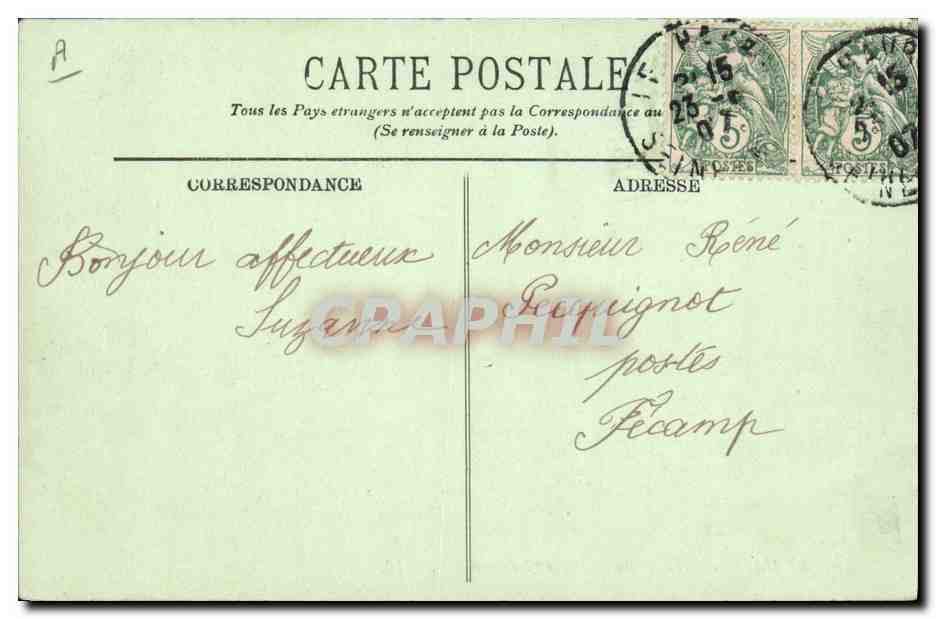 A
CARTE POSTALE
Tous les Pays etrangers n'acceptent pas la Correspondance au
(Se renseigner à la Poste).
LE HAVRE
21 15
23 -5
07
SEINE
5c
POSTES
15
5c
07
POSTES
CORRESPONDANCE
Bonjour affectueux
Suzanne
ADRESSE
Monsieur Réné
Pecquignot
postes
Fécamp
CPAPHIL